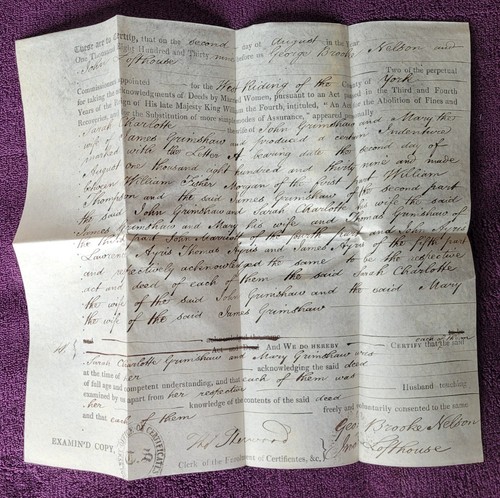 These are to Certify, that on the second day of August in the Year
One Thousand Eight Hundred and Thirty nine before us George Brooke Nelson and
John Lofthouse Two of the perpetual
Commissioners appointed for the West Riding of the County of York
for taking the acknowledgments of Deeds by Married Women, pursuant to an Act passed in the Third and Fourth
Years of the Reign of His late Majesty King William the Fourth, intituled, "An Act for the Abolition of Fines and
Recoveries, and for the Substitution of more simple Modes of Assurance," appeared personally
Sarah Charlotte the wife of John Grimshaw and Mary the
wife of James Grimshaw and produced a certain Indenture
marked with the Letter A bearing date the second day of
August one thousand eight hundred and thirty nine and made
between William Fisher Morgan of the first part William
Thompson and the said James Grimshaw of the second part
the said John Grimshaw and Sarah Charlotte his wife the said
James Grimshaw and Mary his wife and Thomas Grimshaw of
the third part Joan Marriott of the fourth part and John Ayris
Lawrence Ayris Thomas Ayris and James Ayris of the fifth part
and respectively acknowledged the same to be the respective
act and deed of each of them the said Sarah Charlotte
the wife of the said John Grimshaw and the said Mary
the wife of the said James Grimshaw
And WE DO HEREBY CERTIFY that the said
Sarah Charlotte Grimshaw and Mary Grimshaw was
at the time of her acknowledging the said deed
of full age and competent understanding, and that each of them was
examined by us apart from her respective Husband touching
her knowledge of the contents of the said deed
and that each of them freely and voluntarily consented to the same
George Brooke Nelson
Jno Lofthouse
EXAMIN'D COPY.
Clerk of the Enrolment of Certificates, &c.